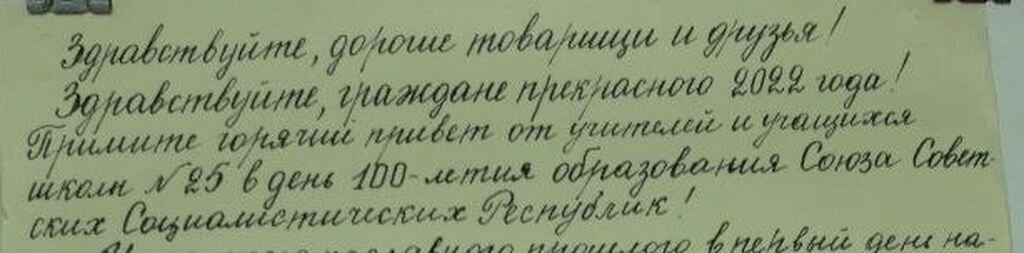 Здравствуйте, дорогие товарищи и друзья!
Здравствуйте, граждане прекрасного 2022 года!
Примите горячий привет от учителей и учащихся
школы №25 в день 100-летия образования Союза Совет-
ских Социалистических Республик!
прошлого в первый день на-